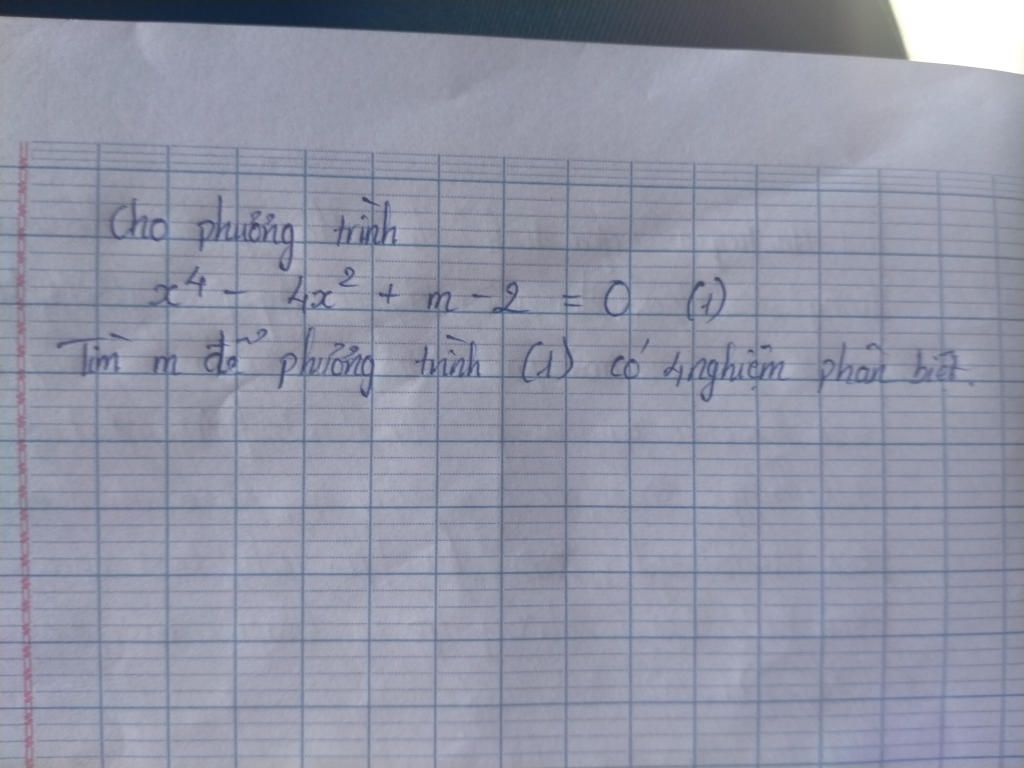 Cho phương trình
x⁴ - 4x² + m - 2 = 0 (1)
Tìm m để phương trình (1) có 4 nghiệm phân biệt.